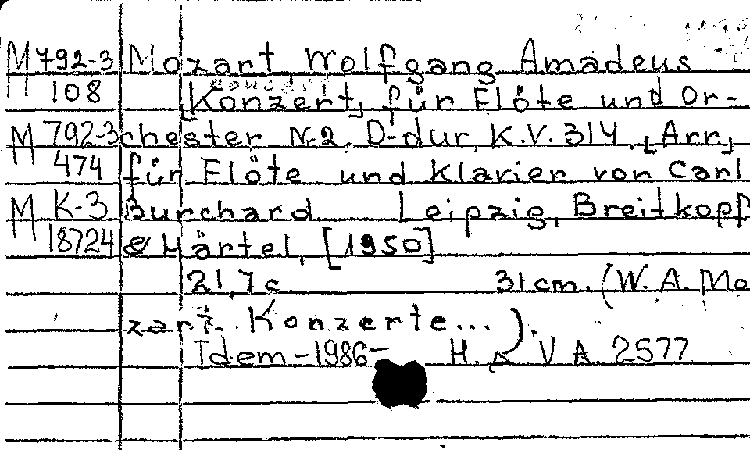 M 792-3 Mozart, Wolfgang Amadeus
108 [Konzert] für Flöte und Or-
M 792-3 chester N.2. D-dur, K.V. 314. [Arr.]
474 für Flöte und Klavier von Carl
M K-3 Burchard Leipzig, Breitkopf
18724 & Härtel, [1950]
21,7 c 31 cm. (W. A. Mo
zart. Konzerte...).
Idem -1986- H. V A 2577